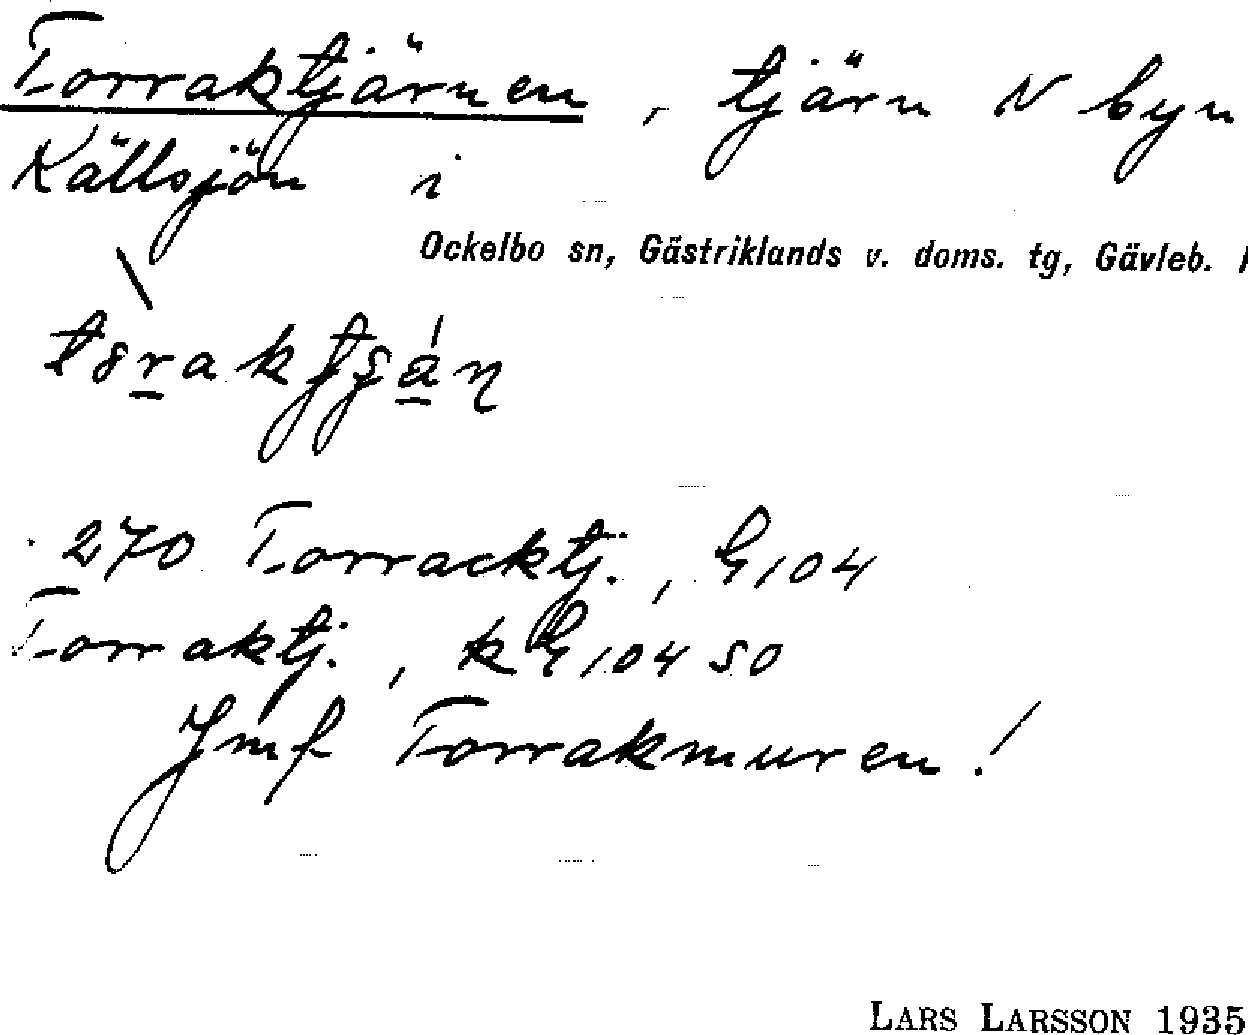 Torraktjärnen, tjärn N byn
Källsjön i
Ockelbo sn, Gästriklands v. doms. tg, Gävleb.
270 Torracktj., G 104
Torraktj., k G 104 SO
Jmf Torrakmuren!
LARS LARSSON 1935